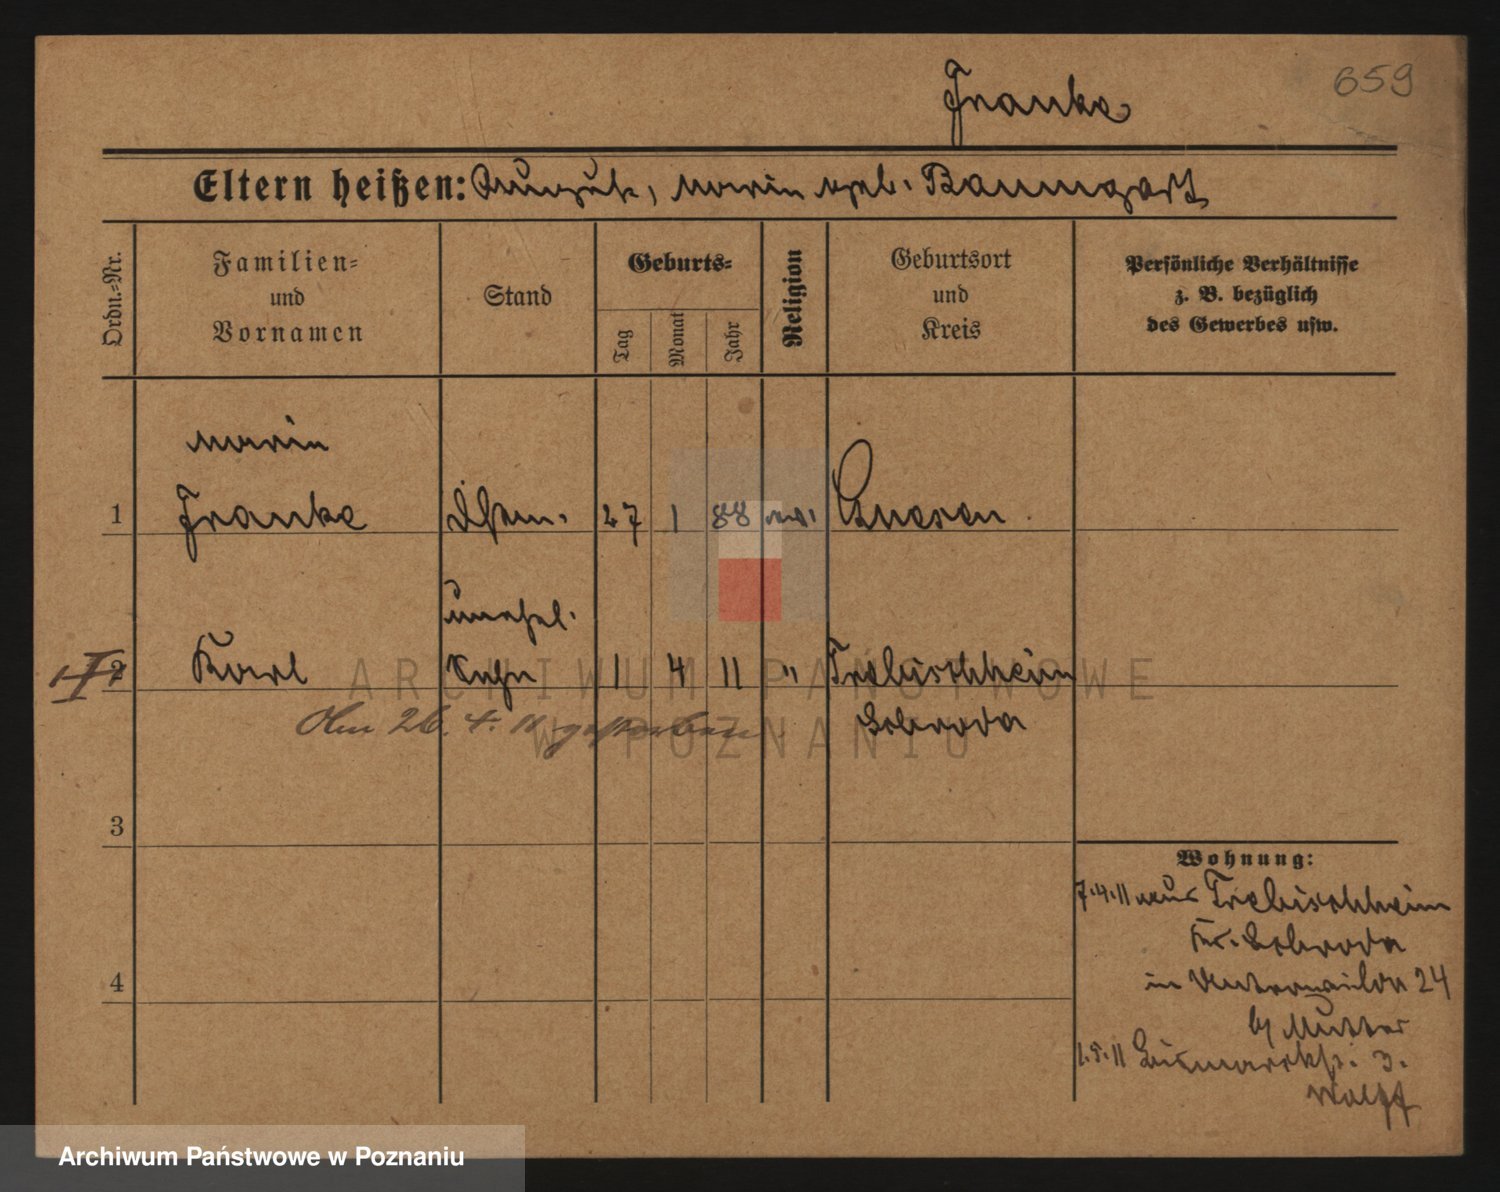 659
Franke
Eltern heißen: August, Marie geb. Baumgart
Ordn.=Nr.
Familien=
und
Vornamen
Stand
Geburts=
Tag
Monat
Jahr
Religion
Geburtsort
und
Kreis
Persönliche Verhältnisse
z. B. bezüglich
des Gewerbes usw.
Marie
1 Franke 27 1 88 ev. Gnesen
unehel.
2 Karl Sohn 1 4 11 " Trebischheim
Schroda
Am 26. 4. 11 gestorben
3
Wohnung:
7.4.11 aus Trebischheim
Kr. Schroda
4
in 24
b/ Mutter
1.5.11 Bismarckstr. 3.
Wolff
ARCHIWUM PAŃSTWOWE
W POZNANIU
Archiwum Państwowe w Poznaniu